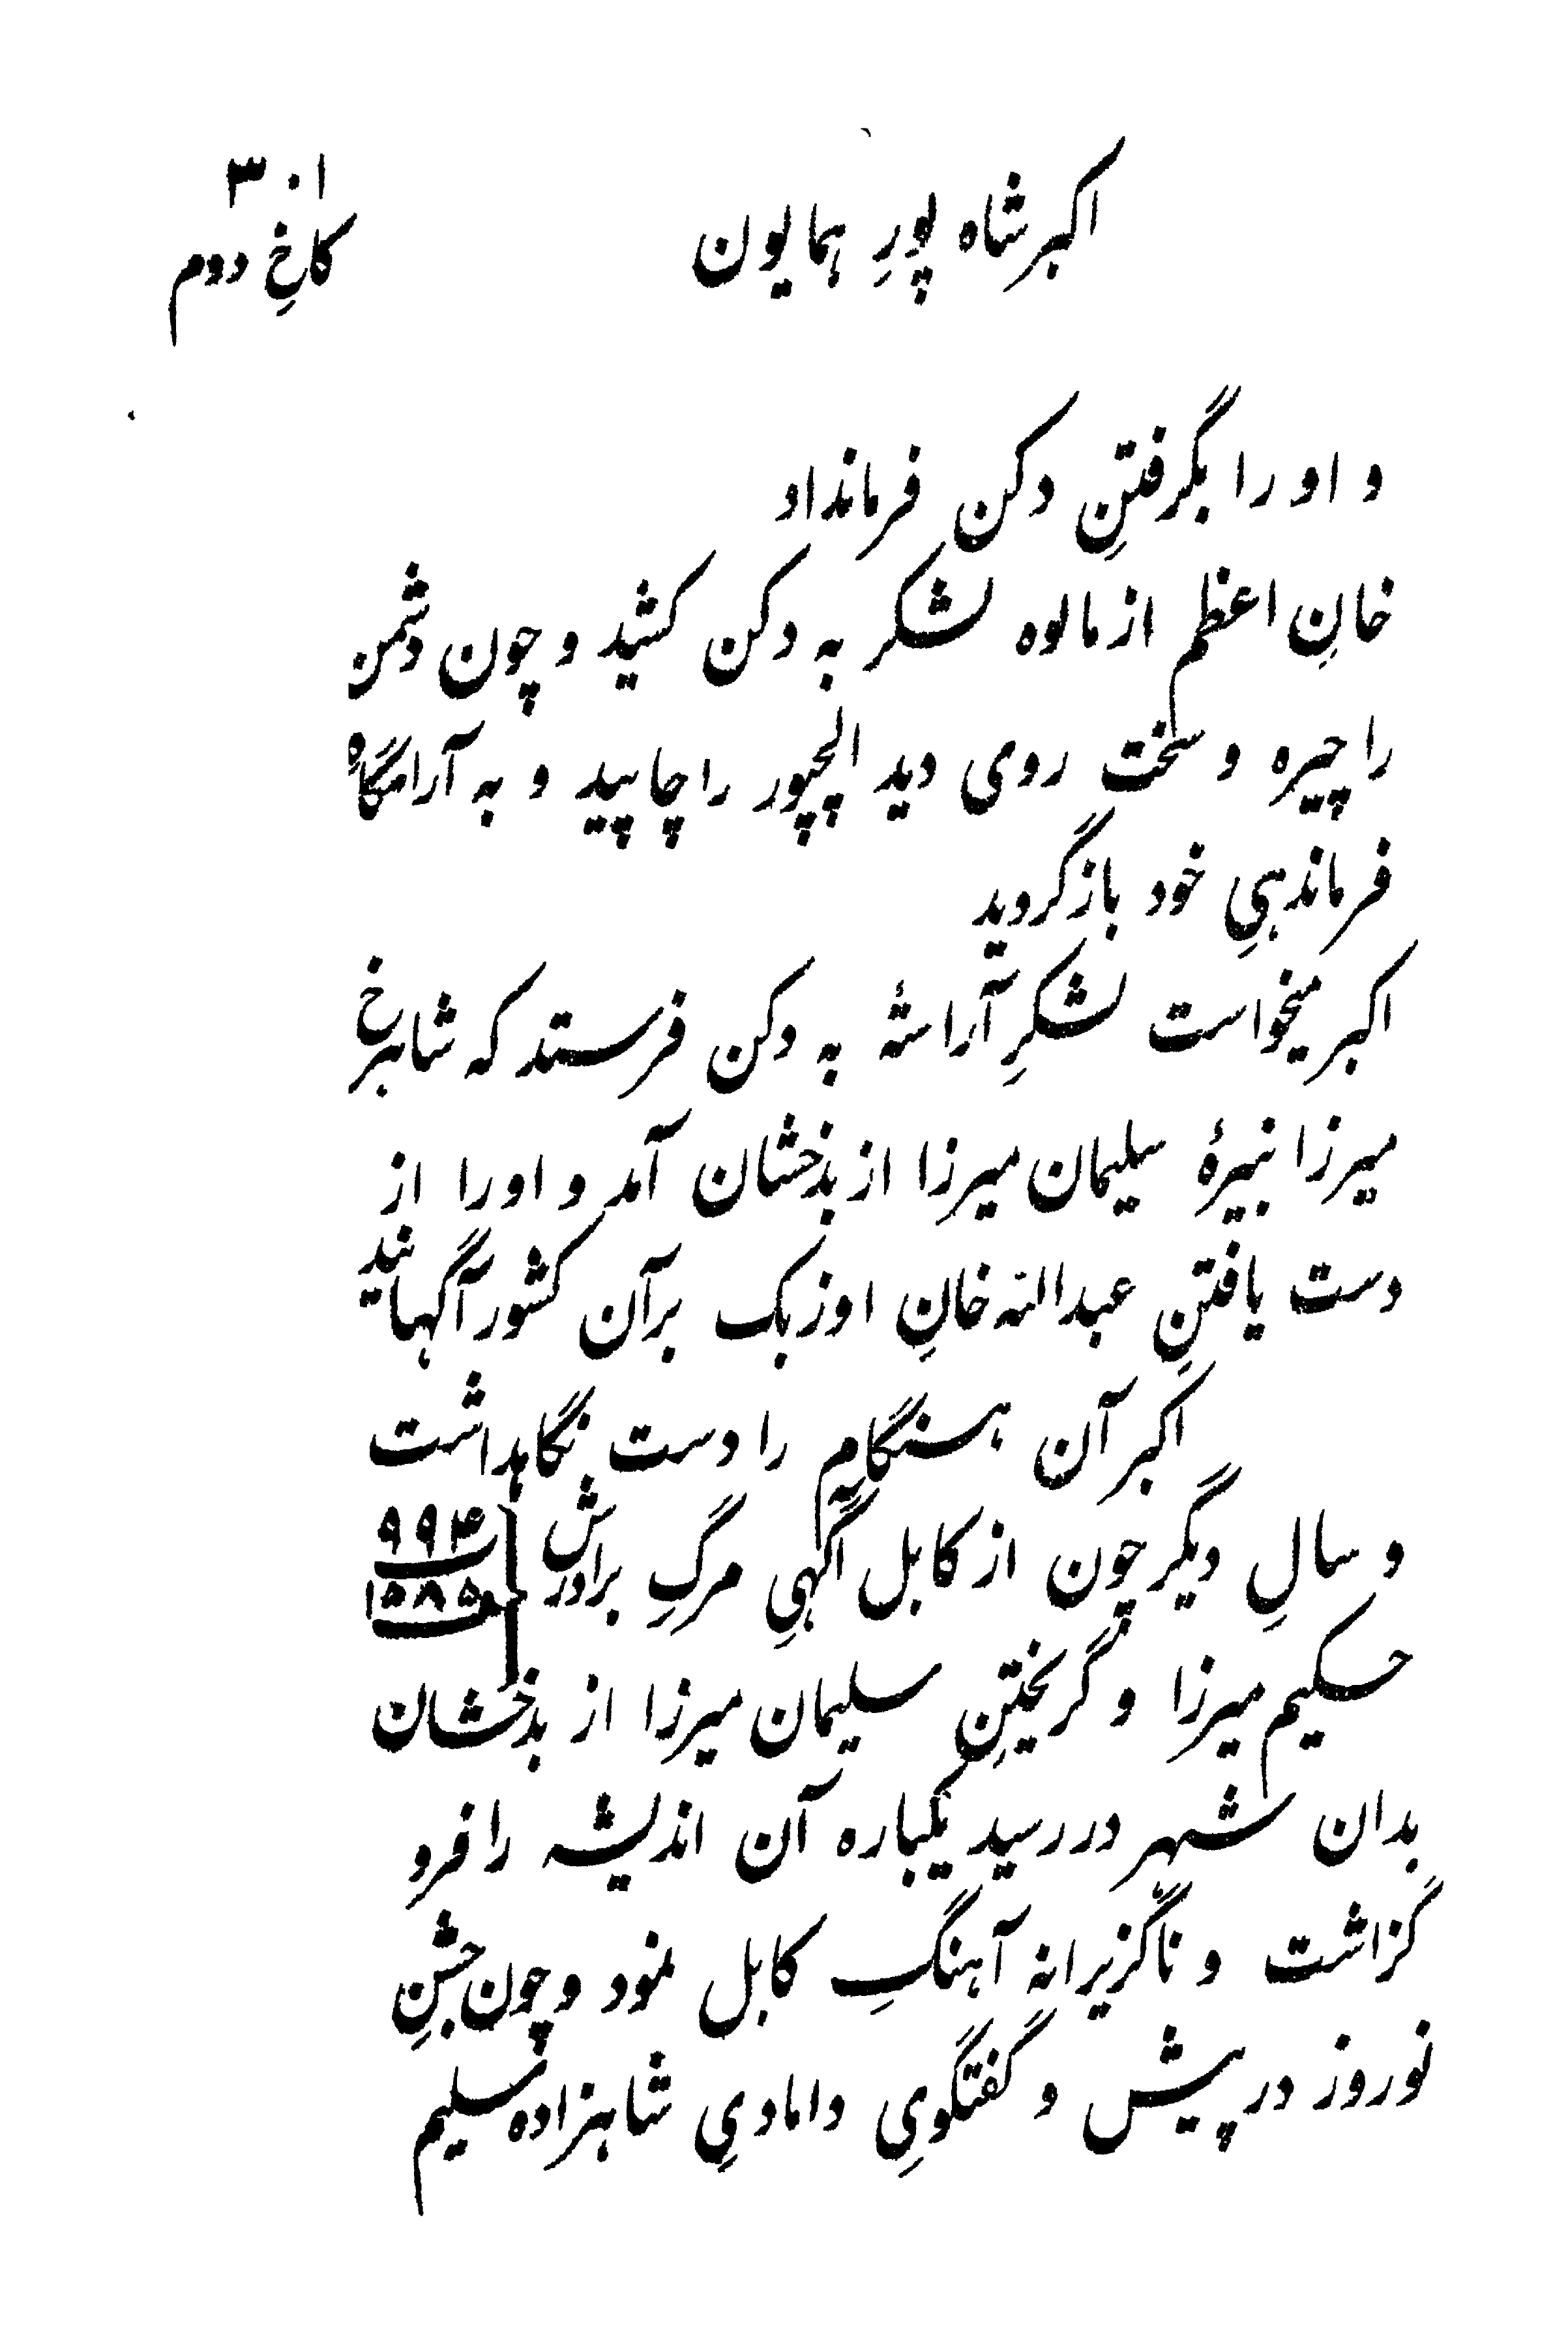 ۳۰۱
اکبر شاه پورِ همایون
کاخِ دوم
و او را بگرفتنِ دکن فرمانداد
خانِ اعظم از مالوه لشکر به دکن کشید و چون دشمن
را چیره و سخت روی دید الچپور را چاپید و به آرامگاهِ
فرماندهیِ خود بازگردید
اکبر میخواست لشکرِ آراستهٔ به دکن فرستد که شاهرخ
میرزا نبیرهٔ سلیمان میرزا از بدخشان آمد و او را از
دست یافتنِ عبدالله خانِ اوزبک بر آن کشور آگهانید
اکبر آن هنگام را دست نگاهداشت
و سالِ دیگر چون از کابل آگهیِ مرگِ برادرش ۹۹۴ ۱۵۸۵
حکیم میرزا و گریختنِ سلیمان میرزا از بدخشان
بدان شهر در رسید یکباره آن اندیشه را فرو
گزاشت و ناگزیرانه آهنگِ کابل نمود و چون جشنِ
نوروز در پیش و گفتگویِ دامادیِ شاهزاده سلیم